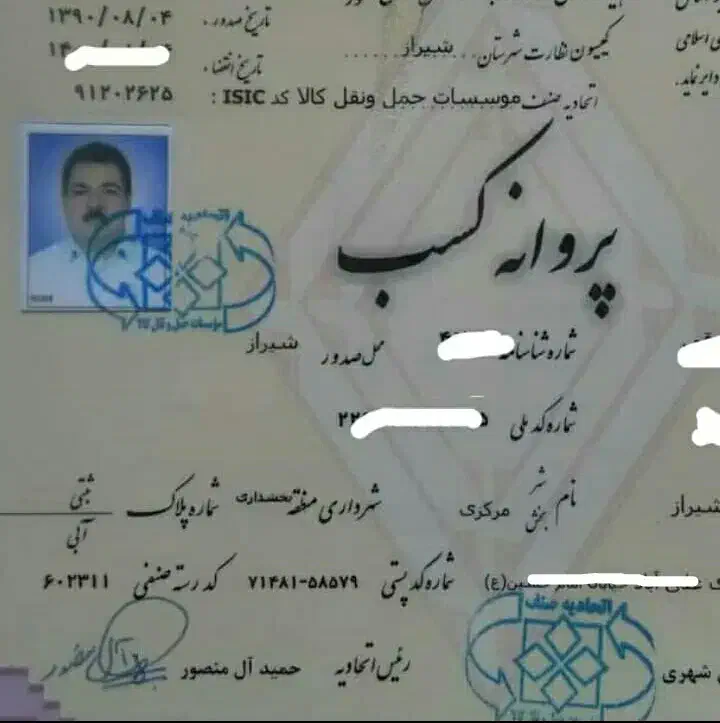 تاریخ صدور . ۱۳۹۰/۰۸/۰۴
اسلامی کمیسیون نظارت شهرستان ... شیراز ... تاریخ انقضاء .
دایر نماید. اتحادیه صنف موسسات حمل ونقل کالا کد ISIC : ۹۱۲۰۲۶۲۵
پروانه کسب
شماره شناسنامه محل صدور شیراز
شماره کد ملی
شیراز نام شهر بخش مرکزی شهرداری منطقه بخشداری شماره پلاک ثبتی آبی
(ع) شماره کد پستی ۷۱۴۸۱-۵۸۵۷۹ کد رسته صنفی ۶۰۲۳۱۱
شهری رئیس اتحادیه حمید آل منصور
اتحادیه صنف
موسسات حمل و نقل کالا
اتحادیه صنف